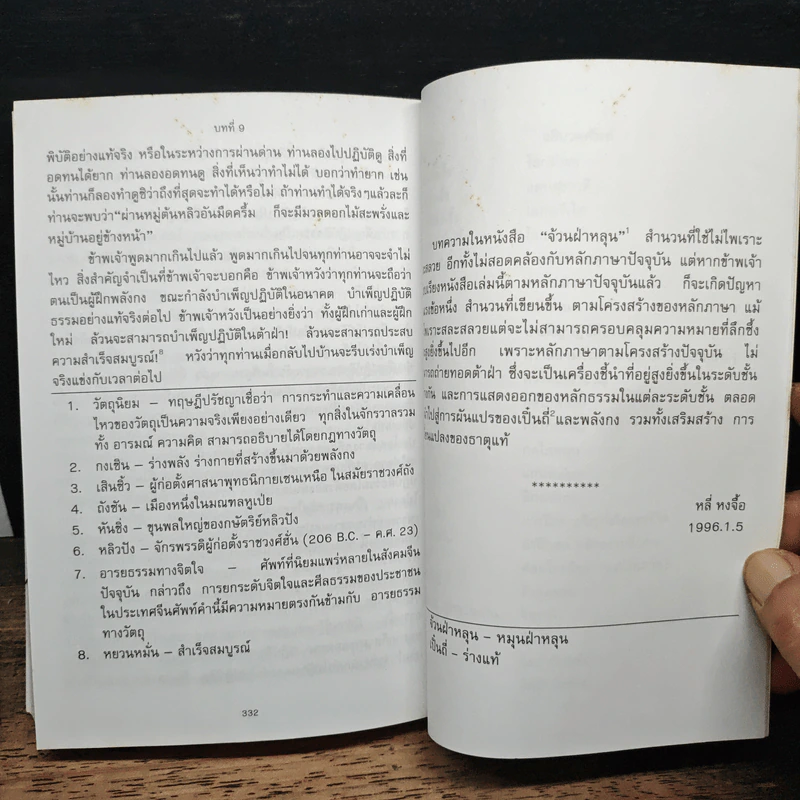 บทที่ 9
พิบัติอย่างแท้จริง หรือในระหว่างการผ่านด่าน ท่านลองไปปฏิบัติดู สิ่งที่
อดทนได้ยาก ท่านลองอดทนดู สิ่งที่เห็นว่าทำไม่ได้ บอกว่าทำยาก เช่น
นั้นท่านก็ลองทำดูซิว่าถึงที่สุดจะทำได้หรือไม่ ถ้าท่านทำได้จริงๆแล้วละก็
ท่านจะพบว่า“ผ่านหมู่ต้นหลิวอันมืดครึ้ม ก็จะมีมวลดอกไม้สะพรั่งและ
หมู่บ้านอยู่ข้างหน้า”
ข้าพเจ้าพูดมากเกินไปแล้ว พูดมากเกินไปจนทุกท่านอาจจะจำไม่
ไหว สิ่งสำคัญจำเป็นที่ข้าพเจ้าจะบอกคือ ข้าพเจ้าหวังว่าทุกท่านจะถือว่า
ตนเป็นผู้ฝึกพลังกง ขณะกำลังบำเพ็ญปฏิบัติในอนาคต บำเพ็ญปฏิบัติ
ธรรมอย่างแท้จริงต่อไป ข้าพเจ้าหวังเป็นอย่างยิ่งว่า ทั้งผู้ฝึกเก่าและผู้ฝึก
ใหม่ ล้วนจะสามารถบำเพ็ญปฏิบัติในต้าฝ่า! ล้วนจะสามารถประสบ
ความสำเร็จสมบูรณ์!8 หวังว่าทุกท่านเมื่อกลับไปบ้านจะรีบเร่งบำเพ็ญ
จริงแข่งกับเวลาต่อไป
1. วัตถุนิยม – ทฤษฎีปรัชญาเชื่อว่า การกระทำและความเคลื่อน
ไหวของวัตถุเป็นความจริงเพียงอย่างเดียว ทุกสิ่งในจักรวาลรวม
ทั้ง อารมณ์ ความคิด สามารถอธิบายได้โดยกฎทางวัตถุ
2. กงเซิน – ร่างพลัง ร่างกายที่สร้างขึ้นมาด้วยพลังกง
3. เสินซิ้ว – ผู้ก่อตั้งศาสนาพุทธนิกายเซนเหนือ ในสมัยราชวงศ์ถัง
4. ถังซัน – เมืองหนึ่งในมณฑลหูเป่ย
5. หันซิ่ง – ขุนพลใหญ่ของกษัตริย์หลิวปัง
6. หลิวปัง – จักรพรรดิผู้ก่อตั้งราชวงศ์ฮั่น (206 B.C. – ค.ศ. 23)
7. อารยธรรมทางจิตใจ – ศัพท์ที่นิยมแพร่หลายในสังคมจีน
ปัจจุบัน กล่าวถึง การยกระดับจิตใจและศีลธรรมของประชาชน
ในประเทศจีนศัพท์คำนี้มีความหมายตรงกันข้ามกับ อารยธรรม
ทางวัตถุ
8. หยวนหมั่น – สำเร็จสมบูรณ์
332
บทความในหนังสือ “จ้วนฝ่าหลุน”1 สำนวนที่ใช้ไม่ไพเราะ
สละสลวย อีกทั้งไม่สอดคล้องกับหลักภาษาปัจจุบัน แต่หากข้าพเจ้า
เรียงหนังสือเล่มนี้ตามหลักภาษาปัจจุบันแล้ว ก็จะเกิดปัญหา
ข้อหนึ่ง สำนวนที่เขียนขึ้น ตามโครงสร้างของหลักภาษา แม้
เพราะสละสลวยแต่จะไม่สามารถครอบคลุมความหมายที่ลึกซึ้ง
สูงยิ่งขึ้นไปอีก เพราะหลักภาษาตามโครงสร้างปัจจุบัน ไม่
ถ่ายทอดต้าฝ่า ซึ่งจะเป็นเครื่องชี้นำที่อยู่สูงยิ่งขึ้นในระดับชั้น
กัน และการแสดงออกของหลักธรรมในแต่ละระดับชั้น ตลอด
ไปสู่การผันแปรของเปิ๋นถี่2และพลังกง รวมทั้งเสริมสร้าง การ
แปลงของธาตุแท้
**********
หลี่ หงจื้อ
1996.1.5
จ้วนฝ่าหลุน – หมุนฝ่าหลุน
เปิ๋นถี่ – ร่างแท้